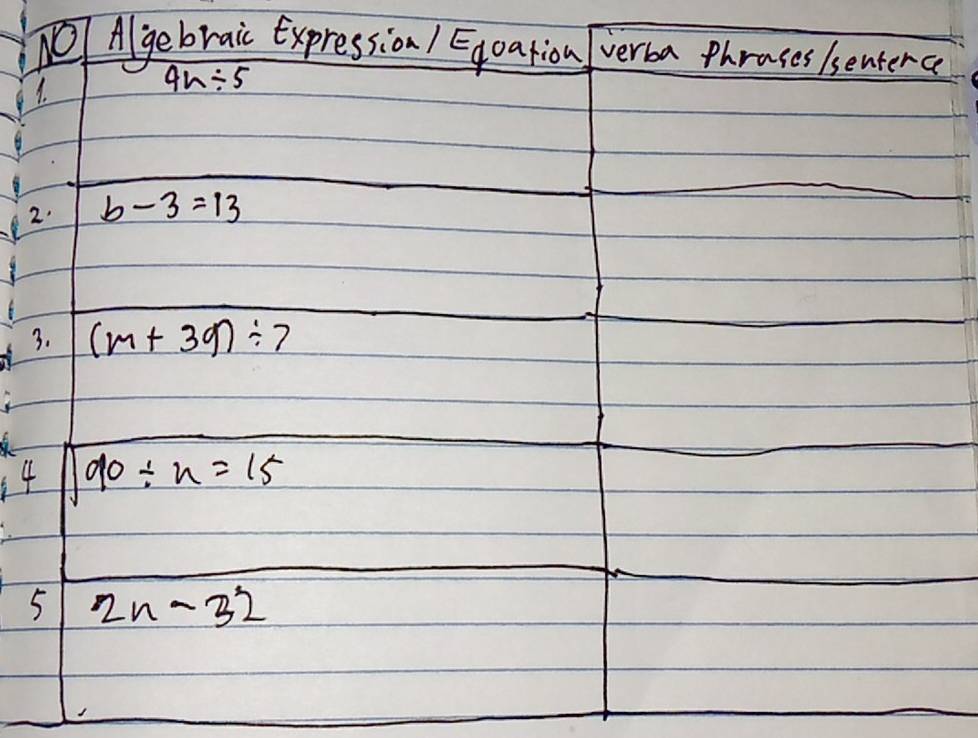 NO Algebraic Expression/Equation verba Phrases/sentence
1. 4n÷5
2. b-3=13
3. (m+39)÷7
4 90÷n=15
5 2n-32